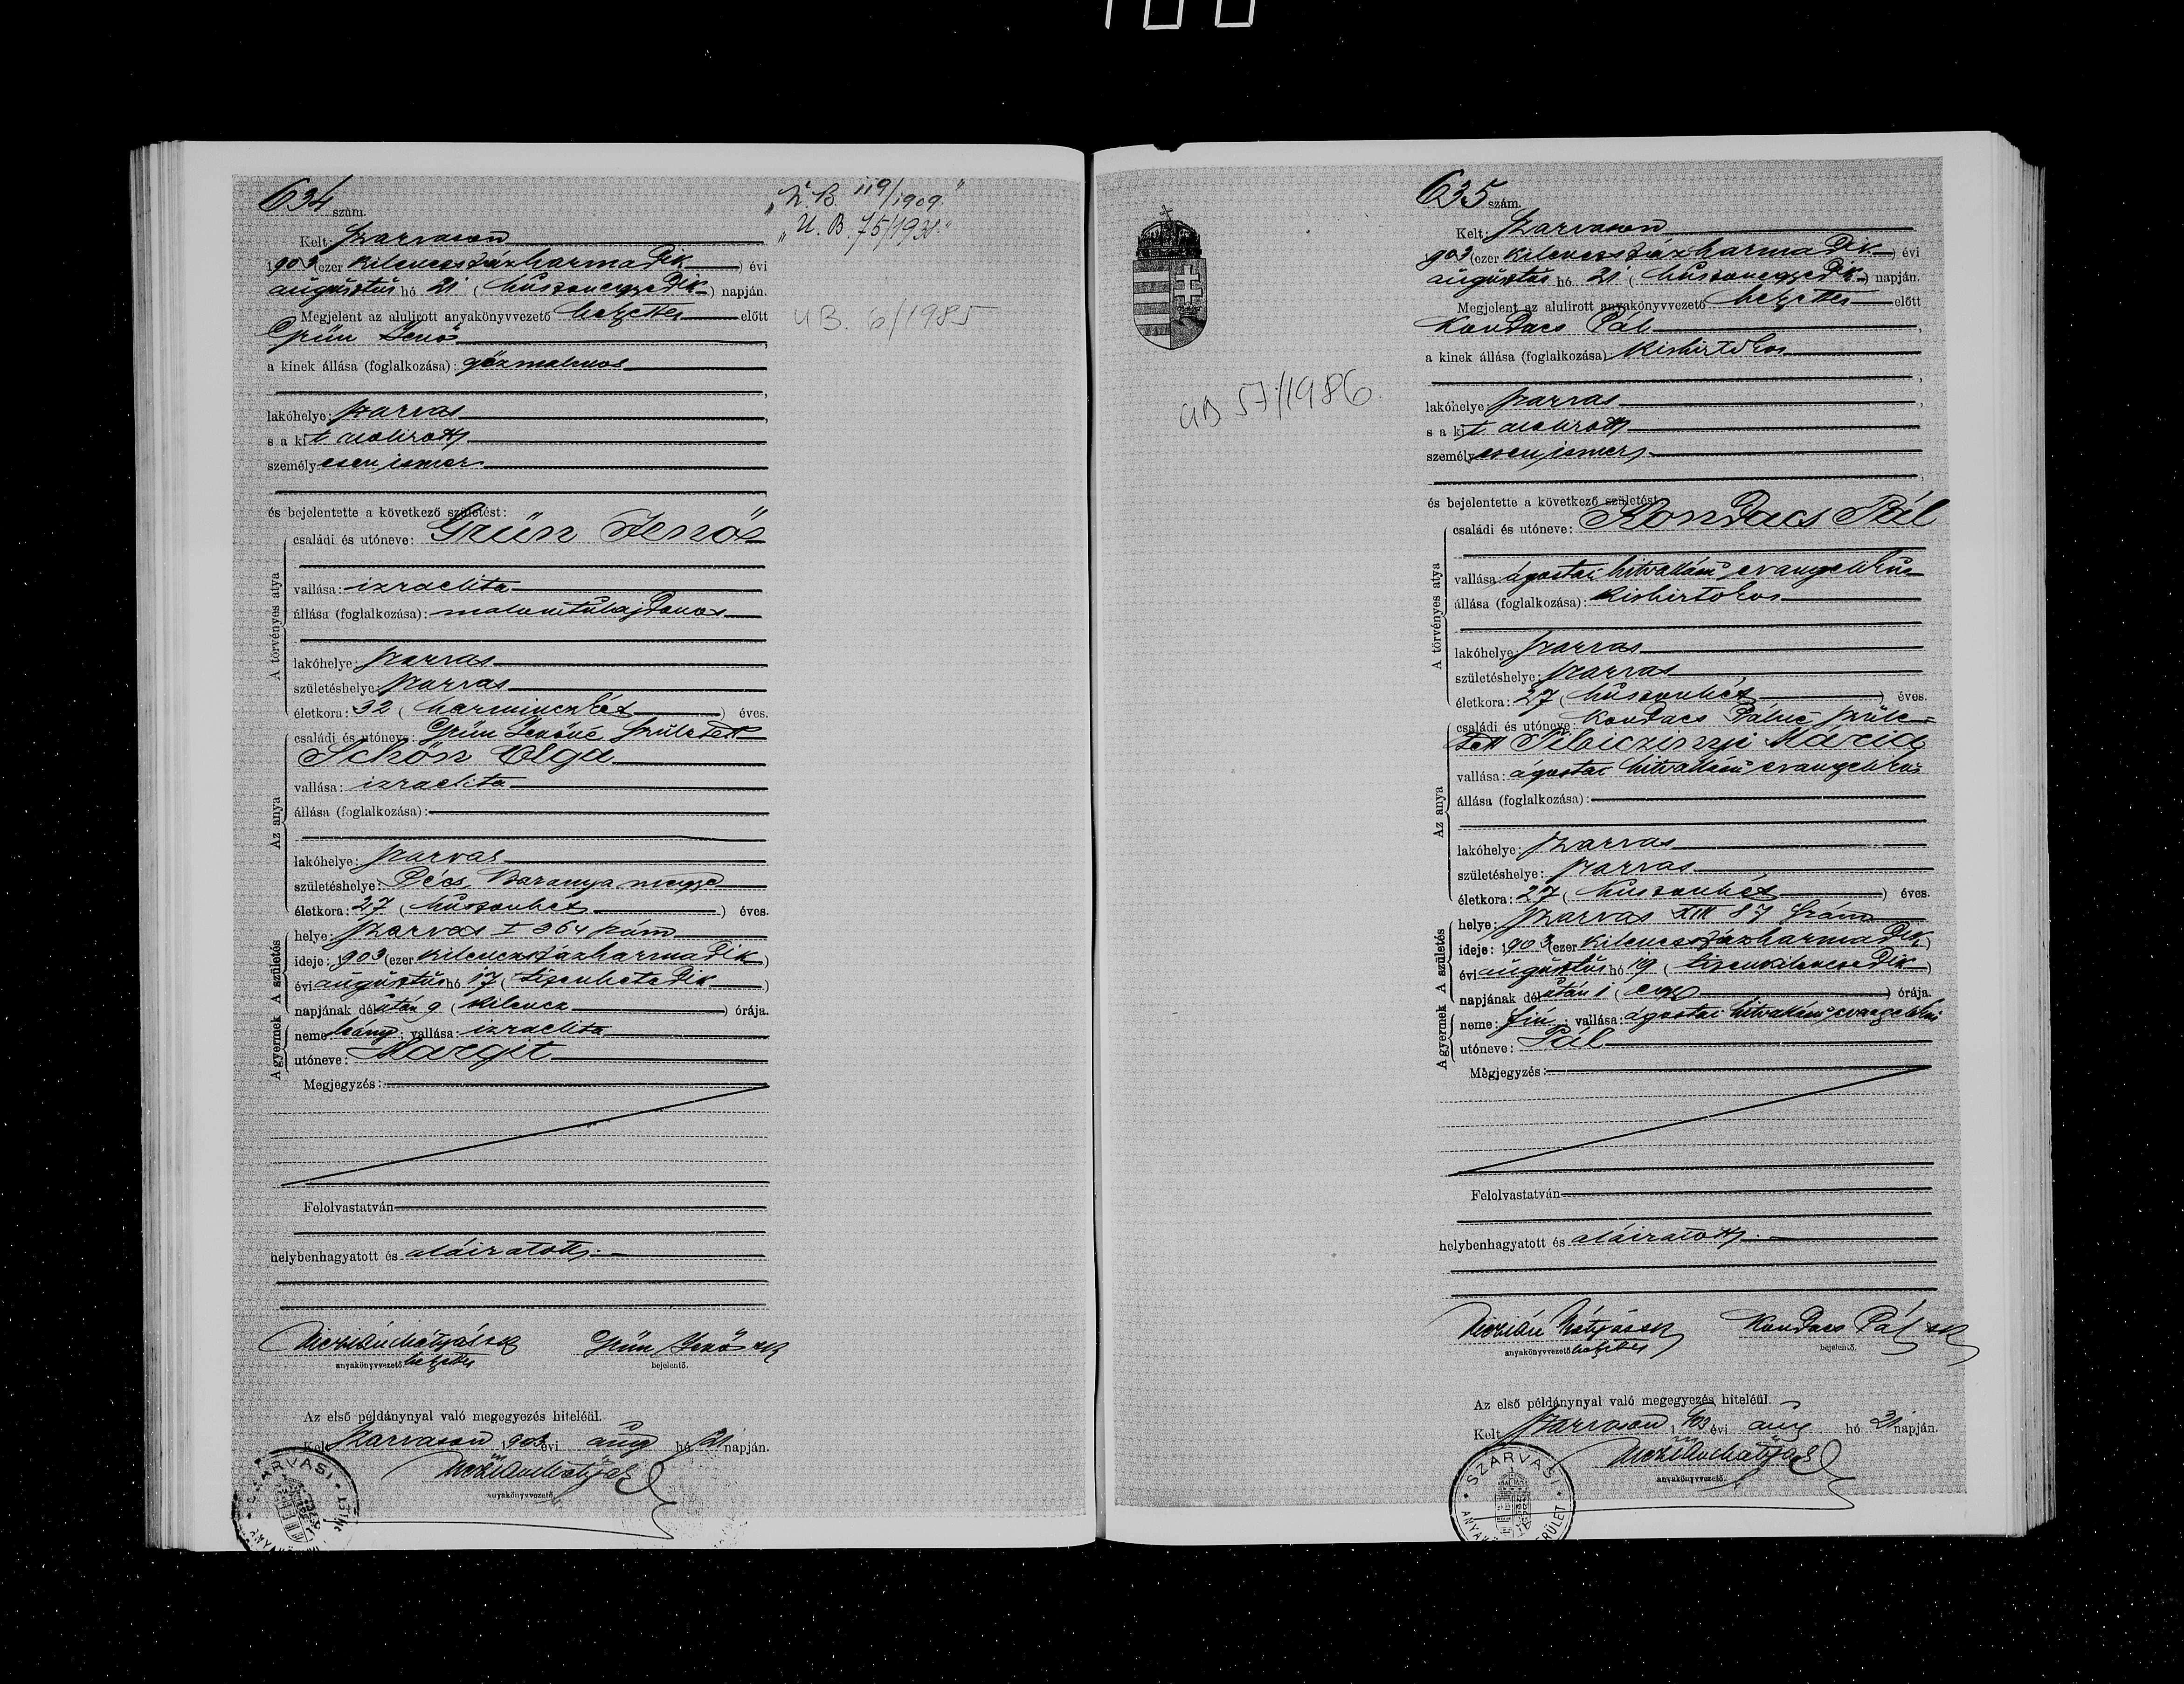 634 szám.
"U. B. 119/1909."
"U. B. 75/1931."
UB. 6/1985
Kelt: Szarvason
1903 (ezer kilencszázharmadik) évi
augusztus hó 21 (huszonegyedik) napján.
Megjelent az alulirott anyakönyvvezető helyettes előtt
Grün Jenő,
a kinek állása (foglalkozása): gőzmalmos
lakóhelye: Szarvas,
s a kit alulirott
személyesen ismer
és bejelentette a következő születést:
A törvényes atya
családi és utóneve: Grün Jenő
vallása: izraelita
állása (foglalkozása): malomtulajdonos
lakóhelye: Szarvas
születéshelye: Szarvas
életkora: 32 (harminczkét) éves.
Az anya
családi és utóneve: Grün Jenőné született
Schön Olga
vallása: izraelita
állása (foglalkozása):
lakóhelye: Szarvas
születéshelye: Pécs, Baranya megye
életkora: 27 (huszonhét) éves.
A születés
helye: Szarvas I 364 szám
ideje: 1903 (ezer kilencszázharmadik)
évi augusztus hó 17 (tizenhetedik)
napjának délután 9 (kilencz) órája.
A gyermek
neme: leány; vallása: izraelita
utóneve: Margit
Megjegyzés:
Felolvastatván
helybenhagyatott és aláiratott.
anyakönyvvezető helyettes
Grün Jenő sk
bejelentő.
Az első példánynyal való megegyezés hiteléül.
Kelt Szarvason 1903 évi aug hó 21 napján.
anyakönyvvezető.
SZARVASI
635 szám.
UB 57/1986.
Kelt: Szarvason
1903 (ezer kilencszázharmadik) évi
augusztus hó 21 (huszonegyedik) napján.
Megjelent az alulirott anyakönyvvezető helyettes előtt
Kondacs Pál,
a kinek állása (foglalkozása): kisbirtokos
lakóhelye: Szarvas,
s a kit alulirott
személyesen ismer,
és bejelentette a következő születést
A törvényes atya
családi és utóneve: Kondacs Pál
vallása: ágostai hitvallású evangelikus
állása (foglalkozása): kisbirtokos
lakóhelye: Szarvas
születéshelye: Szarvas
életkora: 27 (huszonhét) éves.
Az anya
családi és utóneve: Kondacs Pálné szüle=
tett Mária
vallása: ágostai hitvallású evangelikus
állása (foglalkozása):
lakóhelye: Szarvas
születéshelye: Szarvas
életkora: 27 (huszonhét) éves.
A születés
helye: Szarvas XIII 87 szám
ideje: 1903 (ezer kilencszázharmadik)
évi augusztus hó 19 (tizenkilencedik)
napjának délután 1 (egy) órája.
A gyermek
neme: fiú; vallása: ágostai hitvallású evangelikus
utóneve: Pál
Megjegyzés:
Felolvastatván
helybenhagyatott és aláiratott.
anyakönyvvezető helyettes
Kondacs Pál sk
bejelentő.
Az első példánynyal való megegyezés hiteléül.
Kelt Szarvason 1903 évi aug hó 21 napján.
anyakönyvvezető.
SZARVASI